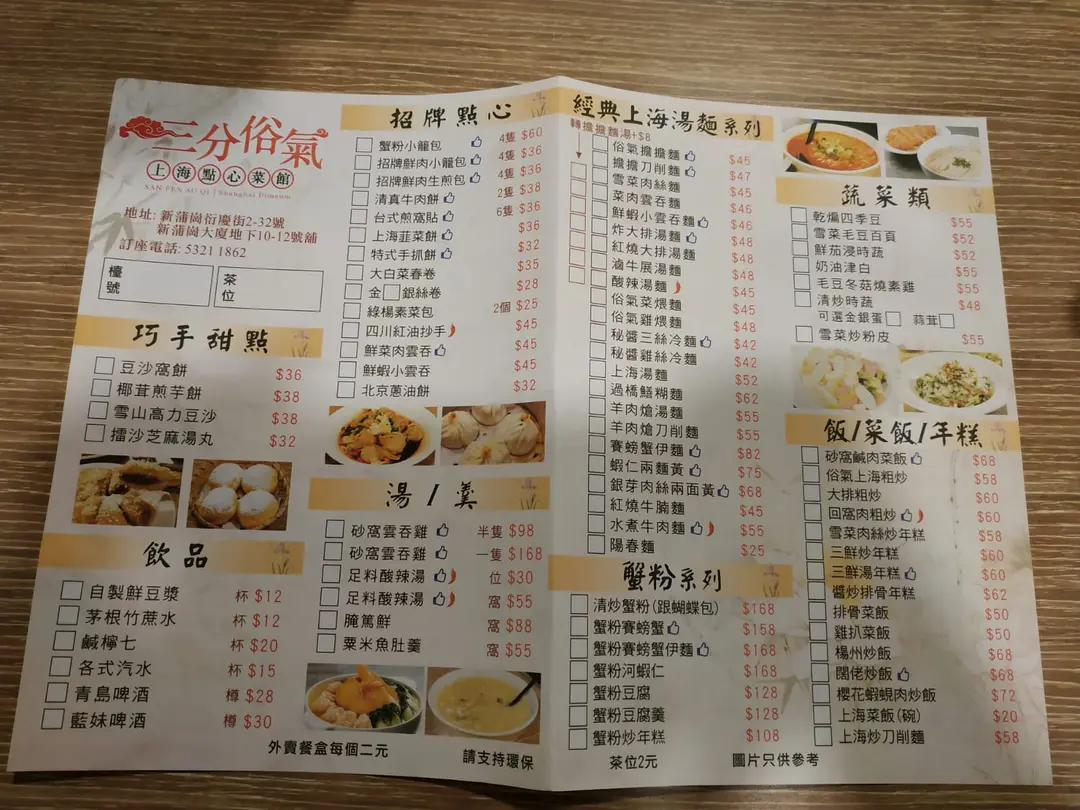 三分俗氣
上海點心菜館
SAN FEN SU QI | Shanghai Dimsum
地址: 新蒲崗衍慶街2-32號
新蒲崗大廈地下10-12號舖
訂座電話: 5321 1862
檯號
茶位
巧手甜點
豆沙窩餅 $36
椰茸煎芋餅 $38
雪山高力豆沙 $38
擂沙芝麻湯丸 $32
飲品
自製鮮豆漿 杯 $12
茅根竹蔗水 杯 $12
鹹檸七 杯 $20
各式汽水 杯 $15
青島啤酒 樽 $28
藍妹啤酒 樽 $30
招牌點心
蟹粉小籠包 4隻 $60
招牌鮮肉小籠包 4隻 $36
招牌鮮肉生煎包 4隻 $36
清真牛肉餅 2隻 $38
台式煎窩貼 6隻 $36
上海韮菜餅 $36
特式手抓餅 $32
大白菜春卷 $35
金 銀絲卷 $28
綠楊素菜包 2個 $25
四川紅油抄手 $45
鮮菜肉雲吞 $45
鮮蝦小雲吞 $45
北京蔥油餅 $32
湯/羹
砂窩雲吞雞 半隻 $98
砂窩雲吞雞 一隻 $168
足料酸辣湯 位 $30
足料酸辣湯 窩 $55
腌篤鮮 窩 $88
粟米魚肚羹 窩 $55
外賣餐盒每個二元
請支持環保
經典上海湯麵系列
轉擔擔麵湯+$8
俗氣擔擔麵 $45
擔擔刀削麵 $47
雪菜肉絲麵 $45
菜肉雲吞麵 $45
鮮蝦小雲吞麵 $46
炸大排湯麵 $48
紅燒大排湯麵 $48
滷牛展湯麵 $48
酸辣湯麵 $45
俗氣菜煨麵 $45
俗氣雞煨麵 $48
秘醬三絲冷麵 $42
秘醬雞絲冷麵 $42
上海湯麵 $52
過橋鱔糊麵 $62
羊肉熗湯麵 $55
羊肉熗刀削麵 $55
賽螃蟹伊麵 $82
蝦仁兩麵黃 $75
銀芽肉絲兩面黃 $68
紅燒牛腩麵 $45
水煮牛肉麵 $55
陽春麵 $25
蟹粉系列
清炒蟹粉(跟蝴蝶包) $168
蟹粉賽螃蟹 $158
蟹粉賽螃蟹伊麵 $168
蟹粉河蝦仁 $168
蟹粉豆腐 $128
蟹粉豆腐羹 $128
蟹粉炒年糕 $108
茶位2元
圖片只供參考
蔬菜類
乾煸四季豆 $55
雪菜毛豆百頁 $52
鮮茄浸時蔬 $52
奶油津白 $55
毛豆冬菇燒素雞 $55
清炒時蔬 $48
可選金銀蛋 蒜茸
雪菜炒粉皮 $55
飯/菜飯/年糕
砂窩鹹肉菜飯 $68
俗氣上海粗炒 $58
大排粗炒 $60
回窩肉粗炒 $60
雪菜肉絲炒年糕 $58
三鮮炒年糕 $60
三鮮湯年糕 $60
醬炒排骨年糕 $62
排骨菜飯 $50
雞扒菜飯 $50
楊州炒飯 $68
闊佬炒飯 $68
櫻花蝦蜆肉炒飯 $72
上海菜飯(碗) $20
上海炒刀削麵 $58